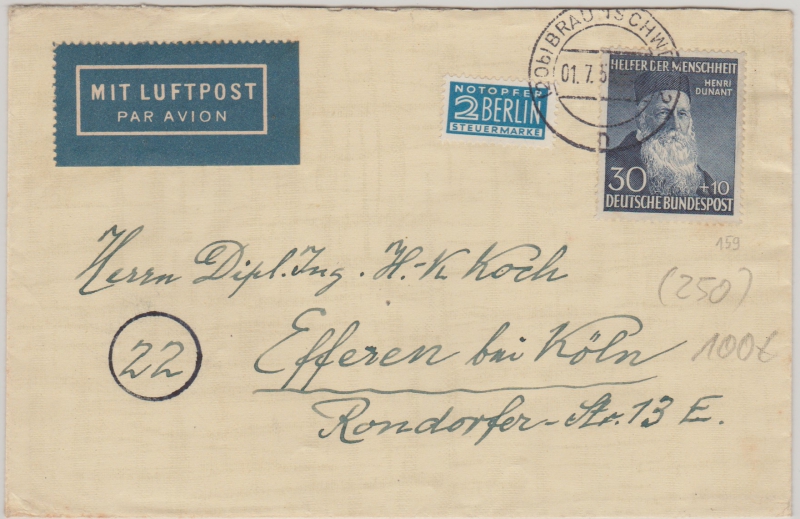 MIT LUFTPOST
PAR AVION
NOTOPFER
2 BERLIN
STEUERMARKE
BRAUNSCHW
01. 7. 5
HELFER DER MENSCHHEIT
HENRI
DUNANT
30 +10
DEUTSCHE BUNDESPOST
159
(250)
100€
Herrn Dipl. Ing. H.-K. Koch
22
Efferen bei Köln
Rondorfer-Str. 13 E.